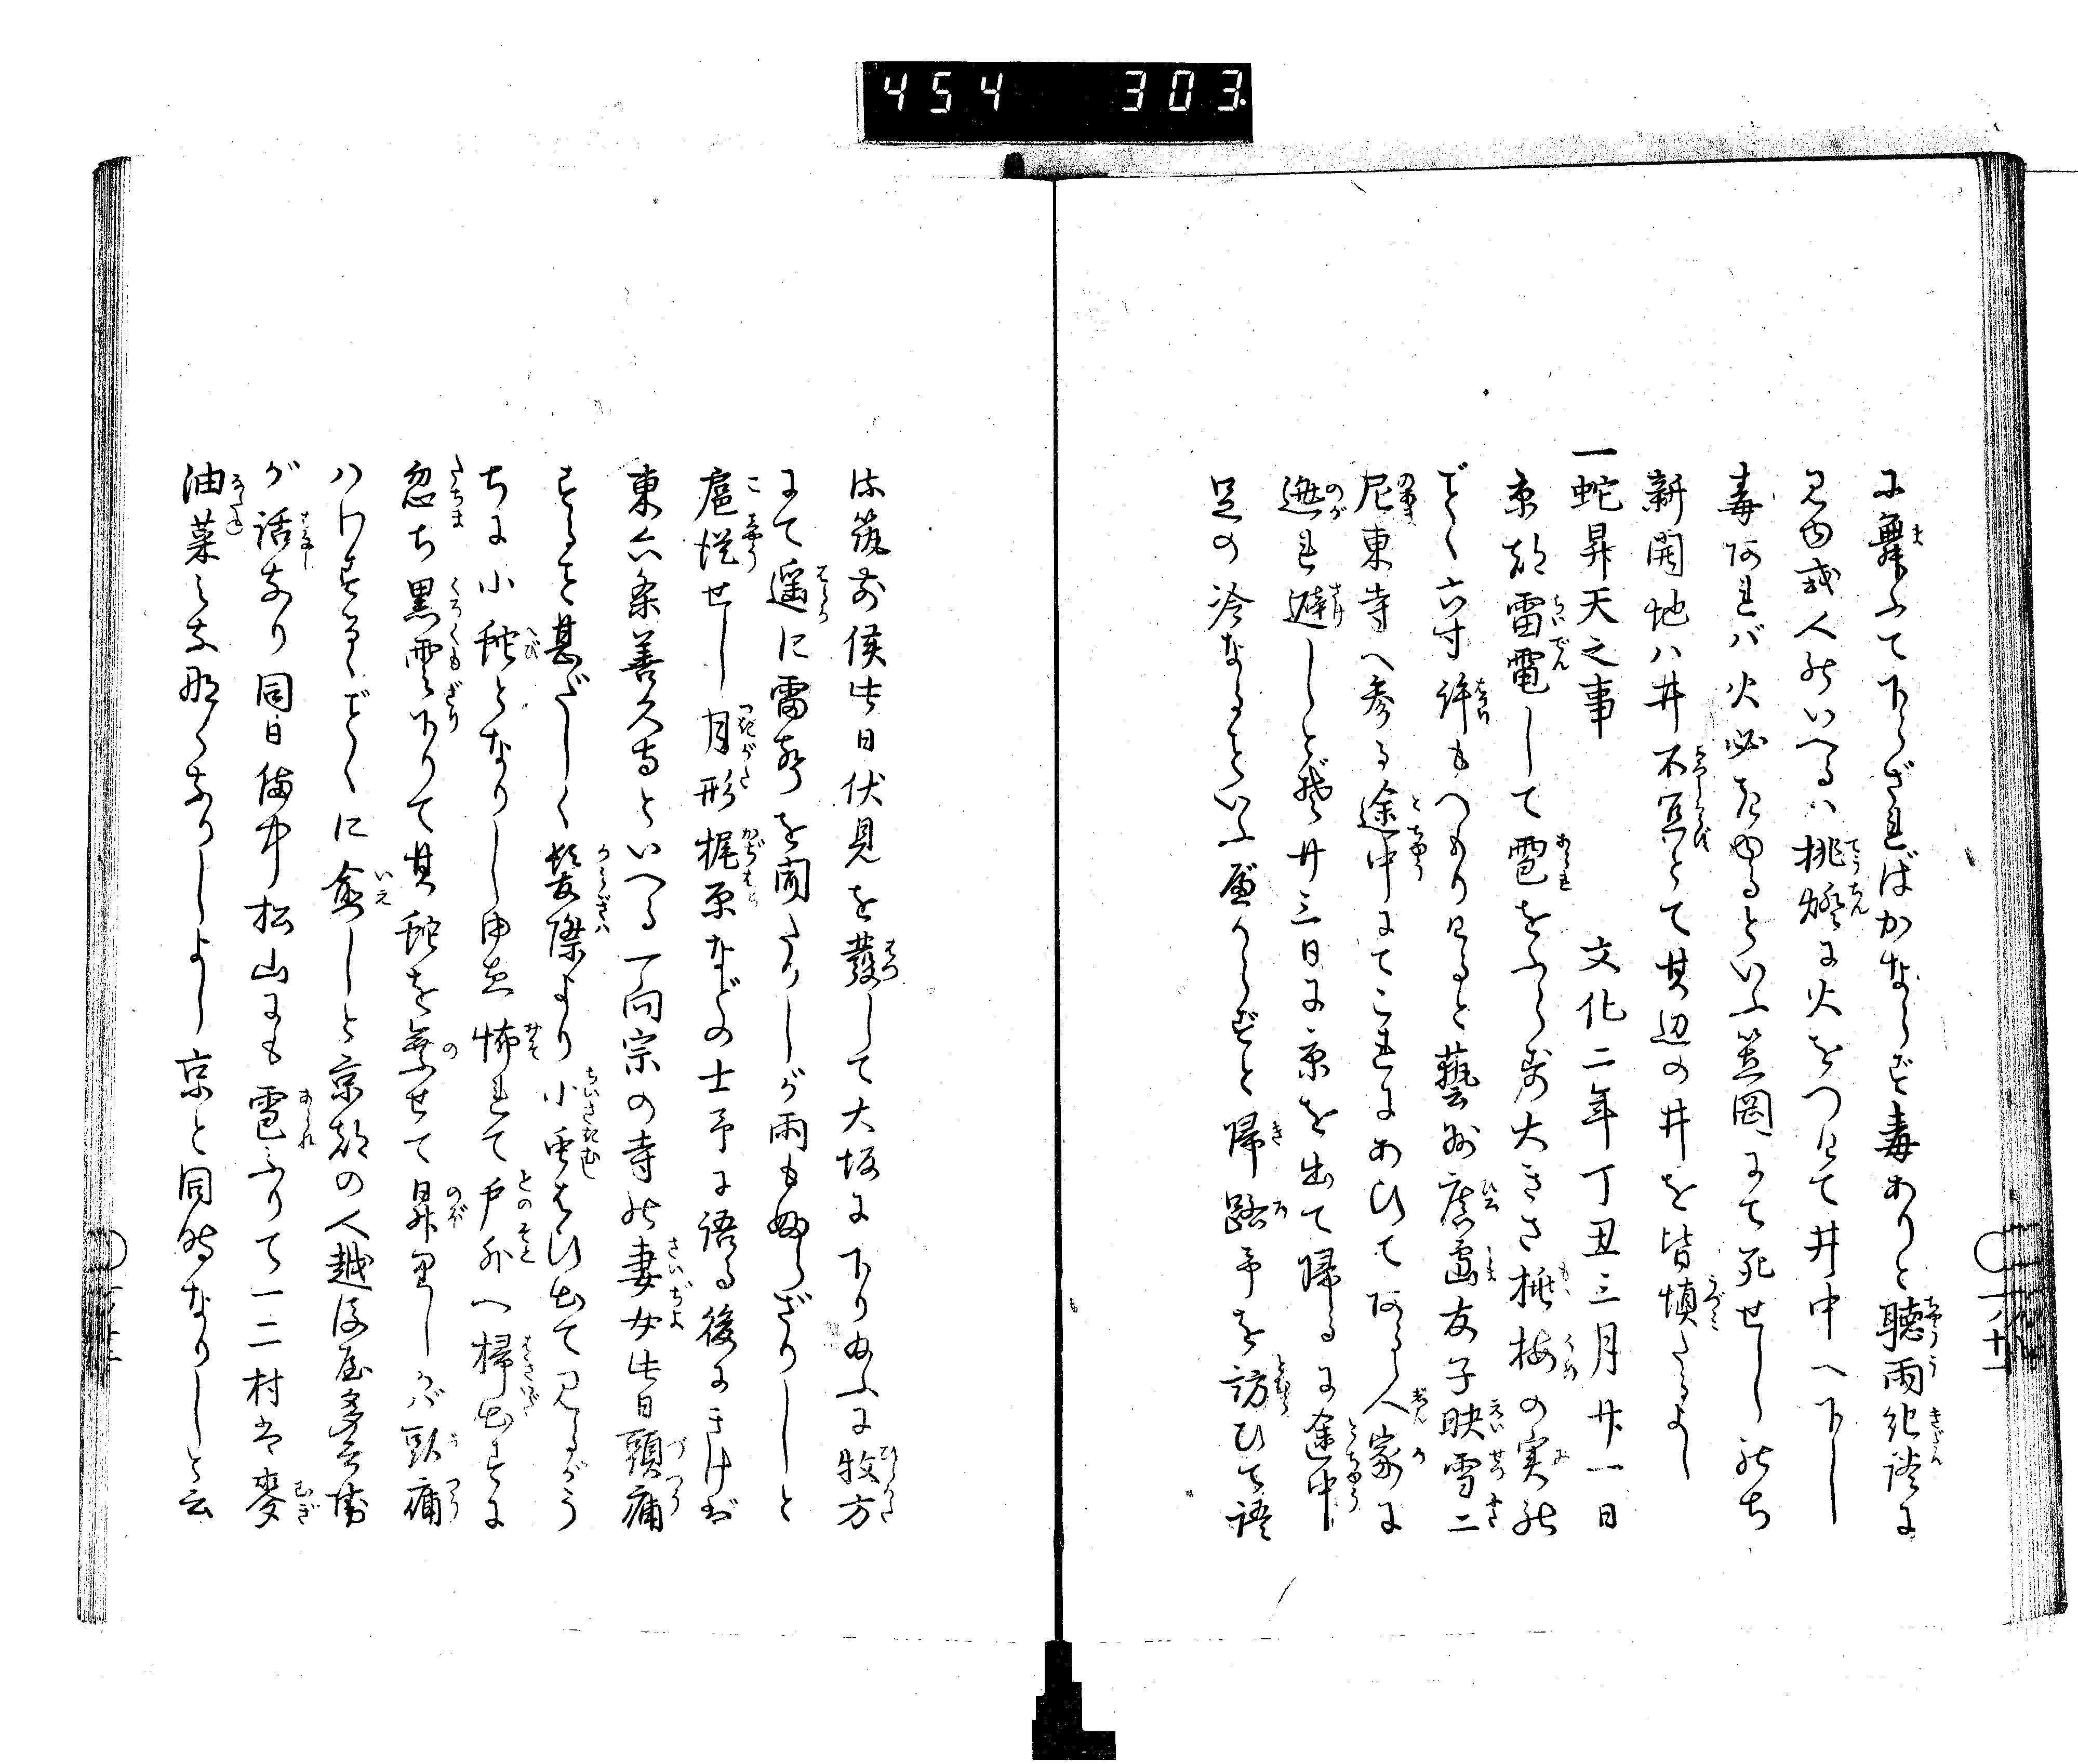 454 303
に舞ふて下らざればかならず毒ありと聴雨紀談に
見ゆ或人のいへるハ挑燈に火をつけて井中へ下し
毒あれバ火必きゆるといふ笠岡にて死せしのち
新開地ハ井不宜とて其辺の井を皆慎たるよし
一蛇昇天之事 文化二年丁丑三月廿一日
京都雷電して雹をふらす大きさ桃梅の実の
ごとく六寸許もつもりけると藝州広島友子映雪二
尼東寺へ参る途中にてこれにあひてある人家に
遁れ避しとぞ廿三日に京を出て帰るに途中
足の冷なるといふ斗らずと帰路予を訪ひて語
筑前侯此日伏見を發して大坂に下り給ふに牧方
にて遥に雷声を聞たりしが雨も如らざりしと
扈従せし月形梶原などの士予に語る後にきけば
東六条善久寺といへる一向宗の寺の妻女此日頭痛
すること甚だしく髪際より小虫はひ出て見るがう
ちに小蛇となりしゆゑ怖れて戸外へ掃出すに
忽ち黒雲下りて其蛇を乗せて昇りしかバ頭痛
ハけするごとくに愈しと京都の人越後屋多兵衛
が話なり同日備中松山にも雹ふりて一二村は麥
油菜みな那くなりしよし京と同時なりしと云